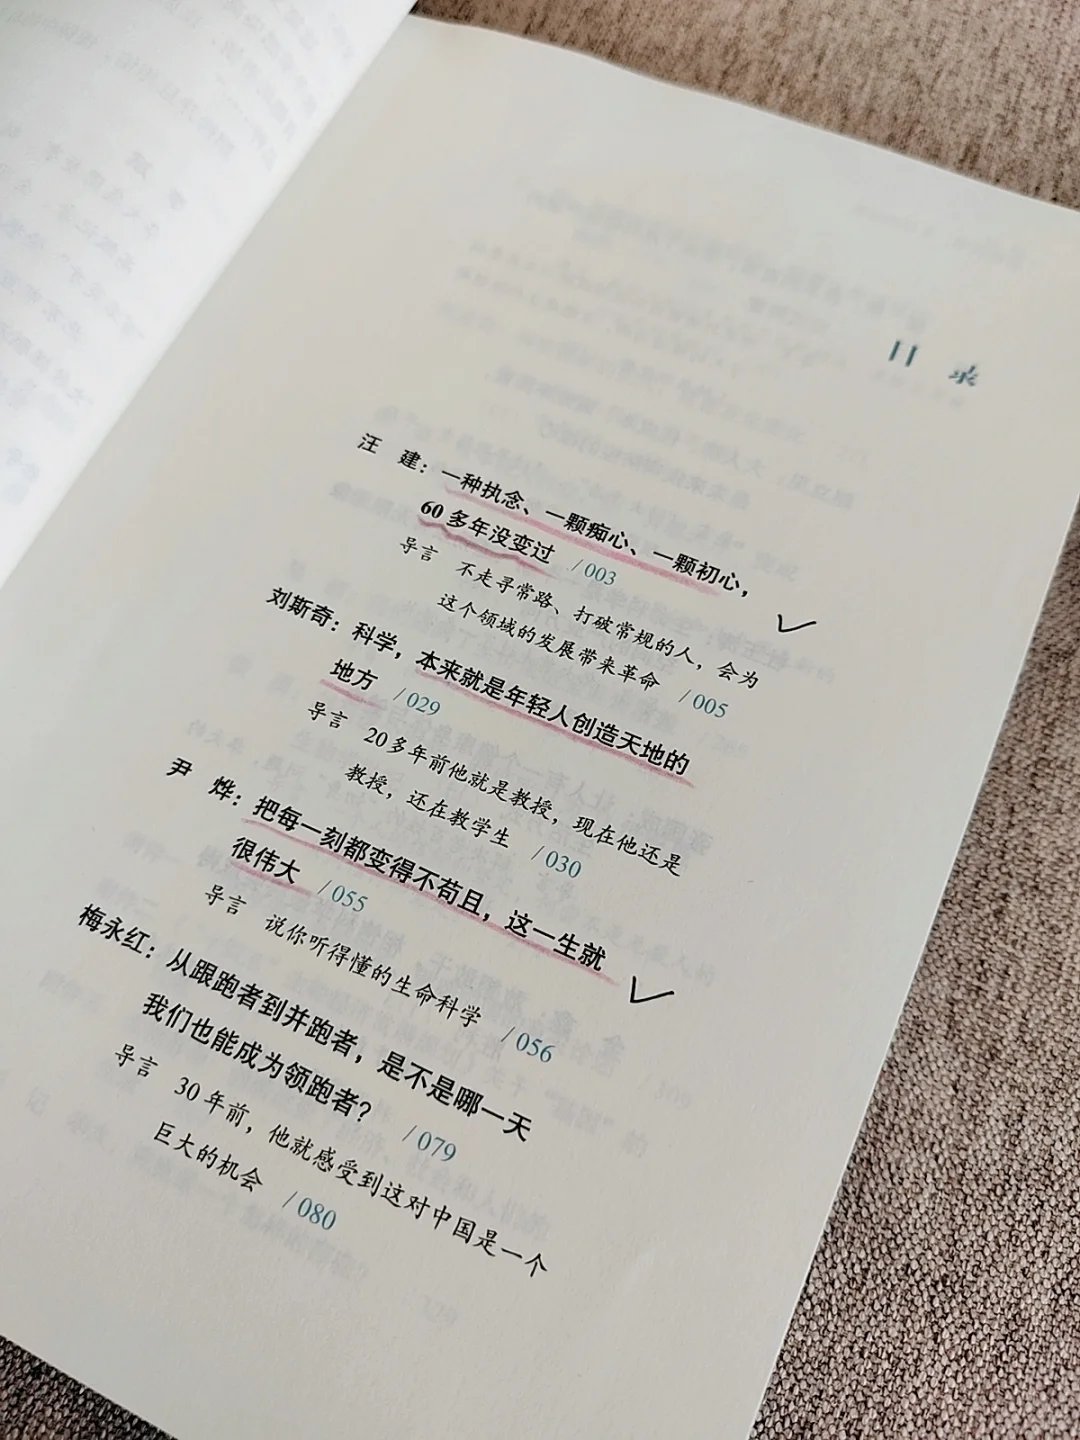 目 录
汪 建：一种执念、一颗痴心、一颗初心，
60多年没变过 /003
导言 不走寻常路、打破常规的人，会为
这个领域的发展带来革命 /005
刘斯奇：科学，本来就是年轻人创造天地的
地方 /029
导言 20多年前他就是教授，现在他还是
教授，还在教学生 /030
尹 烨：把每一刻都变得不苟且，这一生就
很伟大 /055
导言 说你听得懂的生命科学 /056
梅永红：从跟跑者到并跑者，是不是哪一天
我们也能成为领跑者？ /079
导言 30年前，他就感受到这对中国是一个
巨大的机会 /080